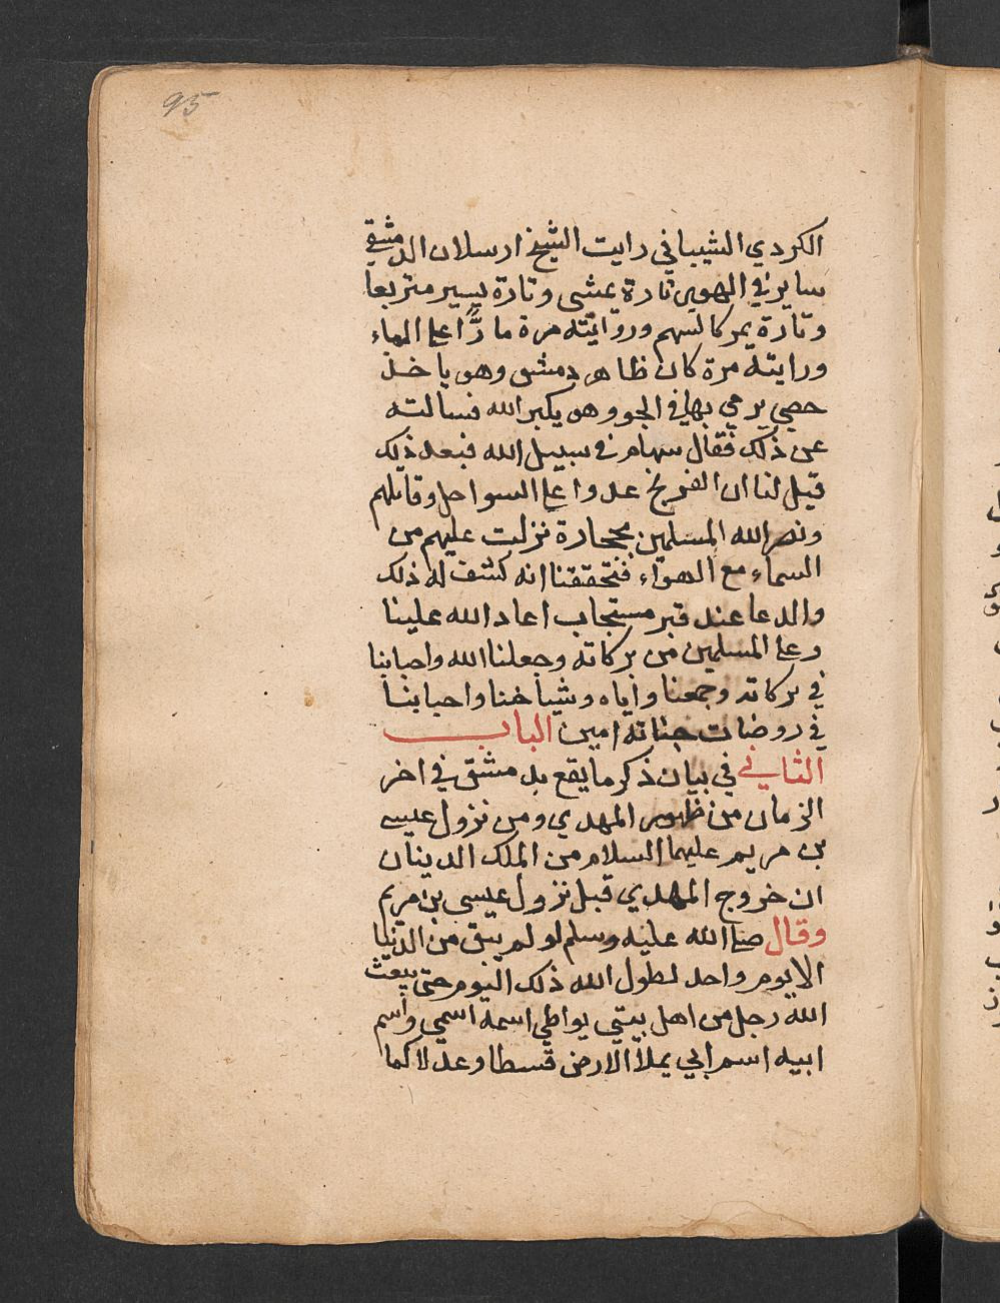 95
الكردي الشيباني رايت الشيخ ارسلان الدمشقي
سايرني الهوي تارة يمشي وتارة يسير متربعا
وتارة يمر كالسهم وروايته مرة مارًّا علي الماء
ورايته مرة كان ظاهر دمشق وهو ياخذ
حصي يرمي بها في الجو وهو يكبر الله فسالته
عن ذلك فقال سهام في سبيل الله فبعد ذلك
قيل لنا ان الفرنج عدوا علي السواحل وقاتلهم
ونصر الله المسلمين بحجارة نزلت عليهم من
السماء مع الهواء فتحققنا انه كشف له ذلك
والدعا عند قبر مستجاب اعاد الله علينا
وعلي المسلمين من بركاته وجعلنا الله واحبابنا
في بركاته وجمعنا واياه وشياخنا واحبابنا
في روضات جناته امين الباب
الثاني في بيان ذكر ما يقع بدمشق في اخر
الزمان من ظهور المهدي ومن نزول عيسي
بن مريم عليهما السلام من الملك الدينان
ان خروج المهدي قبل نزول عيسي بن مريم
وقال صلي الله عليه وسلم لو لم يبق من الدنيا
الا يوم واحد لطول الله ذلك اليوم حتي يبعث
الله رجل من اهل بيتي يواطي اسمه اسمي واسم
ابيه اسم ابي يملأ الارض قسطا وعدلا كما